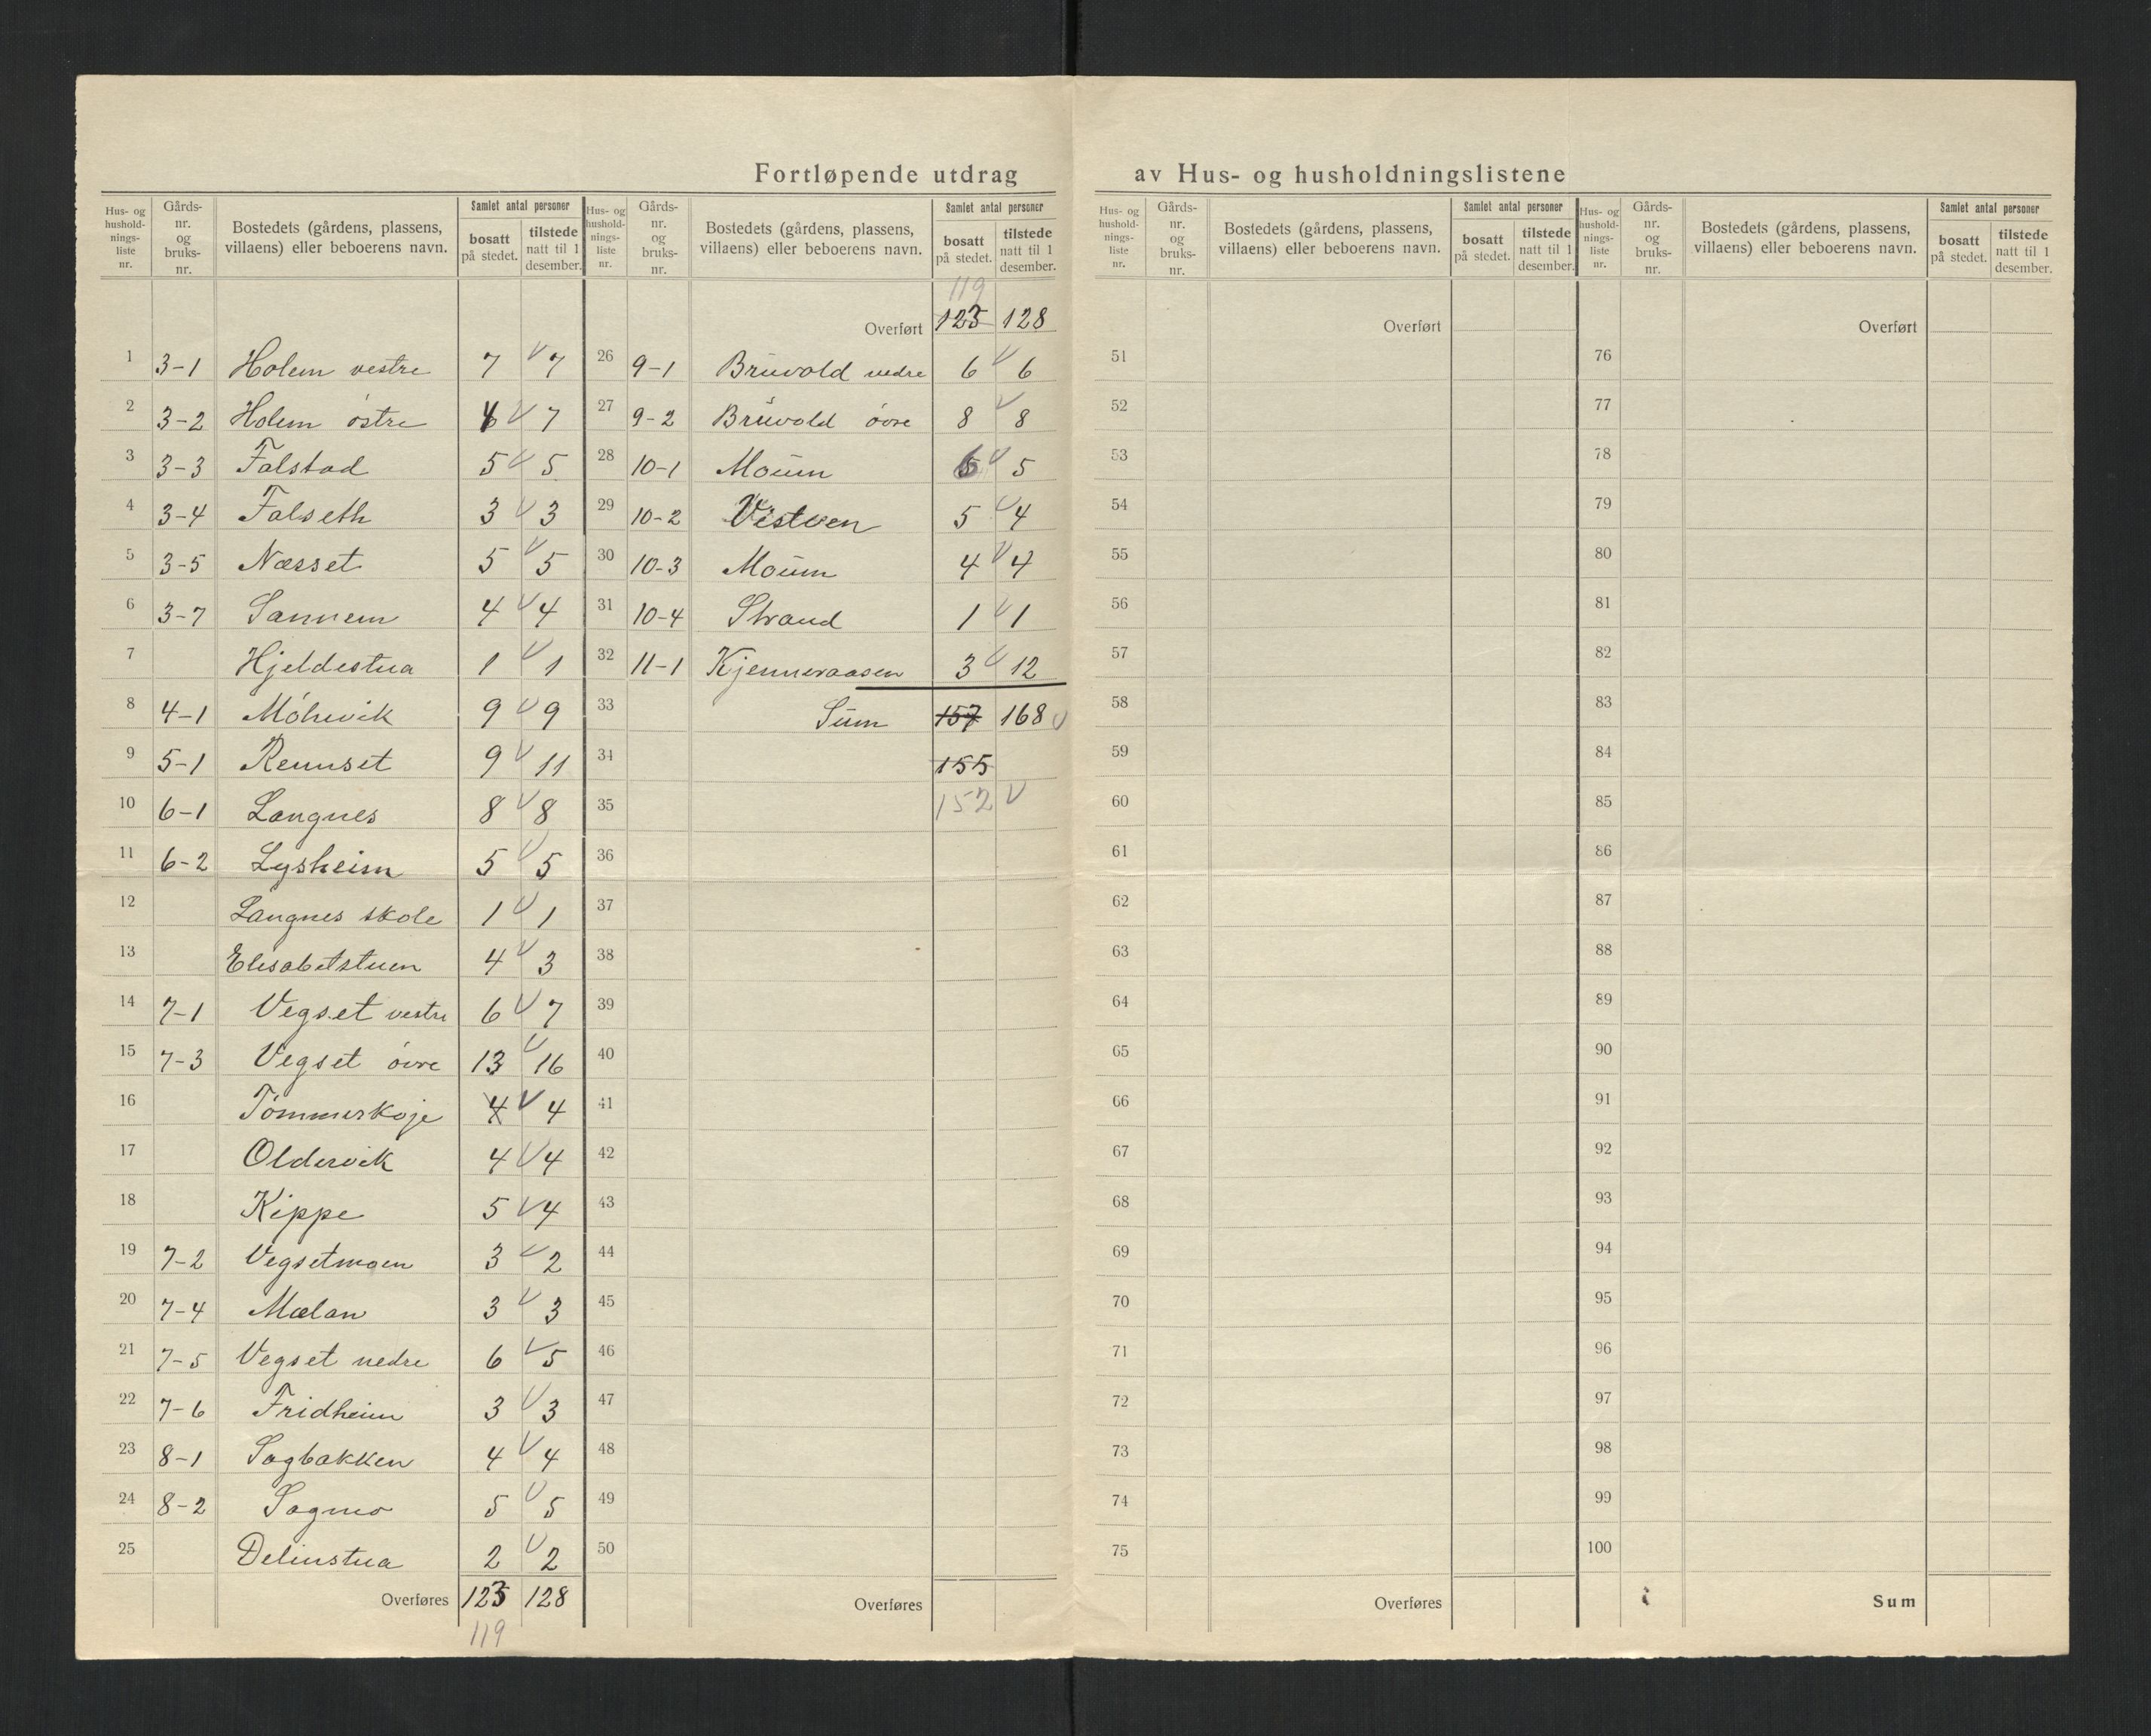 Fortløpende utdrag av Hus- og husholdningslistene
Hus- og hushold-nings-liste nr. Gårds-nr. og bruks-nr. Bostedets (gårdens, plassens, villaens) eller beboerens navn. Samlet antal personer bosatt på stedet. tilstede natt til 1 desember.
1 3-1 Holem vestre 7 V 7
2 3-2 Holem östre 6 V 7
3 3-3 Falstad 5 V 5
4 3-4 Falseth 3 V 3
5 3-5 Næsset 5 V 5
6 3-7 Sannem 4 V 4
7 Hjeldestua 1 V 1
8 4-1 Móhuvik 9 V 9
9 5-1 Rennset 9 V 11
10 6-1 Langnes 8 V 8
11 6-2 Lysheim 5 V 5
12 Langnes skole 1 V 1
13 Elisabetstuen 4 V 3
14 7-1 Vegset vestre 6 V 7
15 7-3 Vegset övre 13 V 16
16 Tömmerkoje 4 V 4
17 Oldervik 4 V 4
18 Kippe 5 V 4
19 7-2 Vegsetmoen 3 V 2
20 7-4 Mælan 3 V 3
21 7-5 Vegset nedre 6 V 5
22 7-6 Fridheim 3 V 3
23 8-1 Sagbakken 4 V 4
24 8-2 Sagmo 5 V 5
25 Delinstua 2 V 2
Overføres 123 128
119
Hus- og hushold-nings-liste nr. Gårds-nr. og bruks-nr. Bostedets (gårdens, plassens, villaens) eller beboerens navn. Samlet antal personer bosatt på stedet. tilstede natt til 1 desember.
119
Overført 123 128
26 9-1 Brŭvold nedre 6 V 6
27 9-2 Brŭvold övre 8 V 8
28 10-1 Moŭm 6 V 5
29 10-2 Vestven 5 V 4
30 10-3 Moŭm 4 V 4
31 10-4 Strand 1 V 1
32 11-1 Kjenneraasen 3 V 12
33 Sŭm 157 168 V
34 155
35 152 V
36
37
38
39
40
41
42
43
44
45
46
47
48
49
50
Overføres
Hus- og hushold-nings-liste nr. Gårds-nr. og bruks-nr. Bostedets (gårdens, plassens, villaens) eller beboerens navn. Samlet antal personer bosatt på stedet. tilstede natt til 1 desember.
Overført
51
52
53
54
55
56
57
58
59
60
61
62
63
64
65
66
67
68
69
70
71
72
73
74
75
Overføres
Hus- og hushold-nings-liste nr. Gårds-nr. og bruks-nr. Bostedets (gårdens, plassens, villaens) eller beboerens navn. Samlet antal personer bosatt på stedet. tilstede natt til 1 desember.
Overført
76
77
78
79
80
81
82
83
84
85
86
87
88
89
90
91
92
93
94
95
96
97
98
99
100
Sum